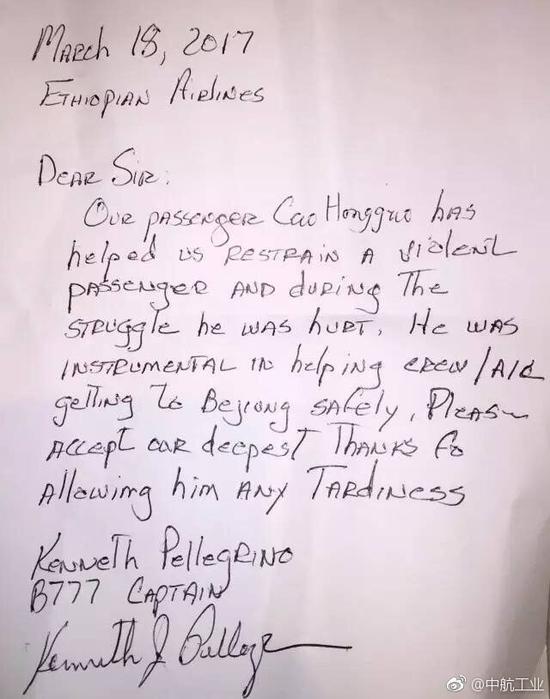 March 18, 2017
Ethiopian Airlines
Dear Sir:
Our passenger Cao Hongguo has
helped us restrain a violent
passenger and during the
struggle he was hurt. He was
instrumental in helping crew/A/C
getting to Bejiung safely. Pleas
accept our deepest thanks fo
allowing him any tardiness
Kenneth Pellegrino
B777 Captain
Kenneth J
@中航工业